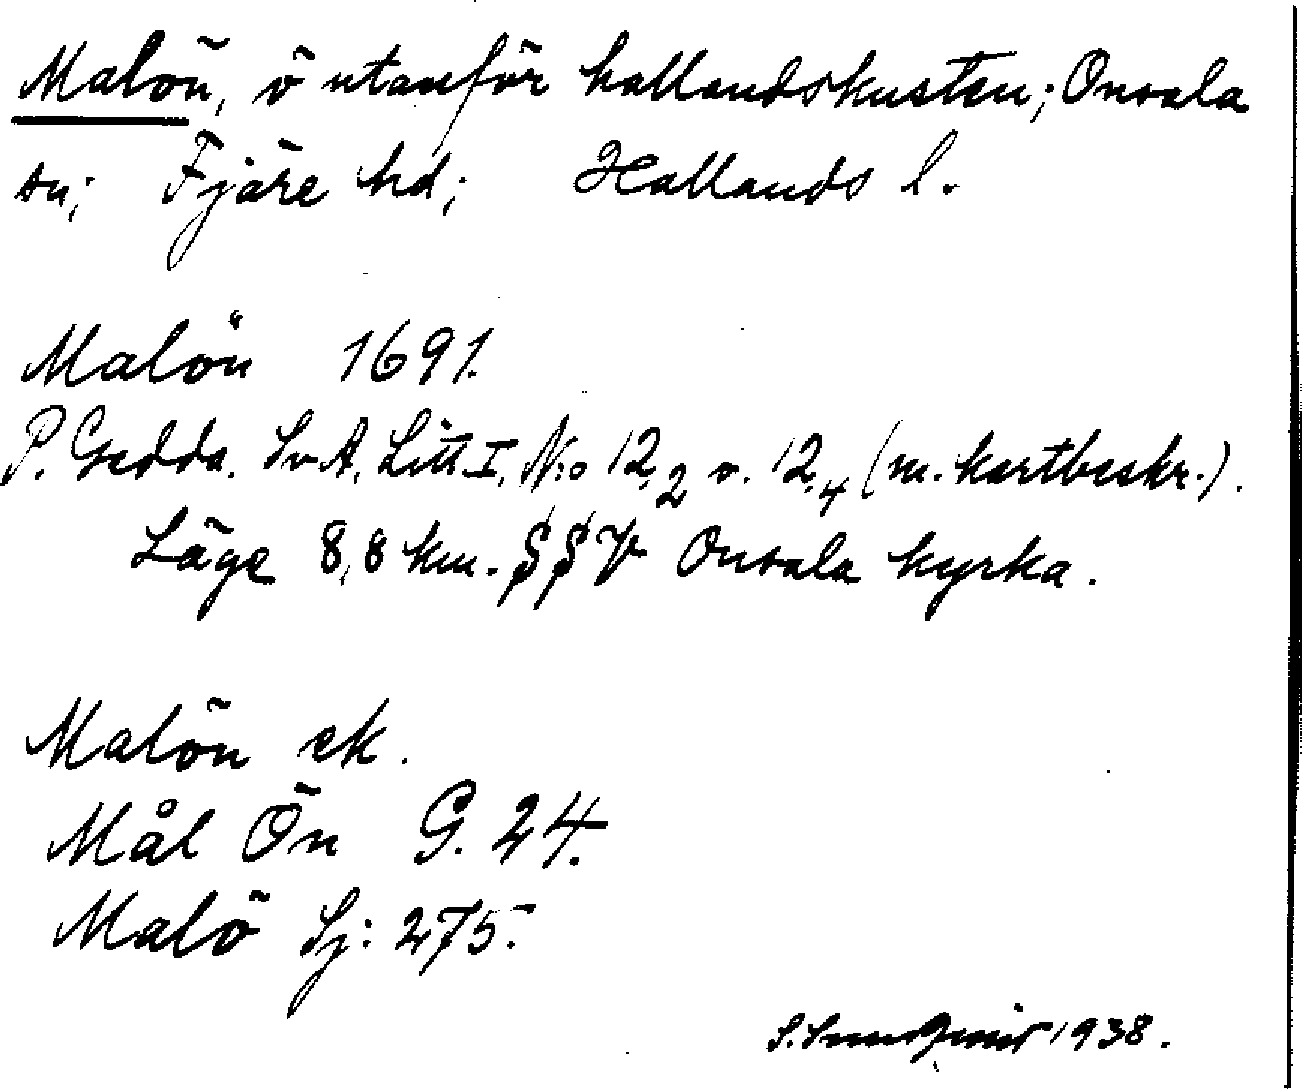 Malön, ö utanför hallandskusten; Onsala
sn; Fjäre hd; Hallands l.
Malön 1691.
P. Gedda. Sv A. Litt I, N:o 12,2 o. 12,4 (m. kartbeskr.).
Läge 8,8 km. SSV Onsala kyrka.
Malön ek.
Mål Ön G. 24.
Malö Sj: 275.
S. 1938.